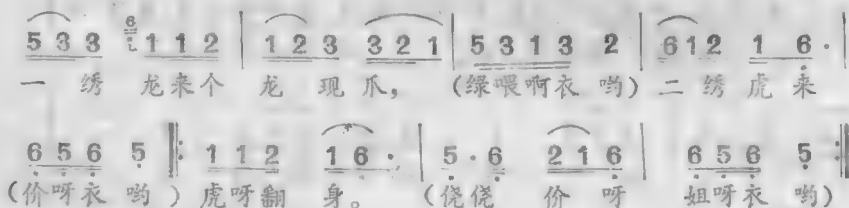 5 3 3 6 i 1 1 2 | 1 2 3 3 2 1 | 5 3 1 3 2 | 6 1 2 1 6 · |
一 绣 龙来个 龙 现 爪， (绿喂啊衣 哟) 二 绣 虎 来
6 5 6 5 ‖: 1 1 2 1 6 · | 5 · 6 2 1 6 | 6 5 6 5 :‖
(价呀衣 哟) 虎呀翻 身。 (侥侥 价 呀 姐呀衣 哟)